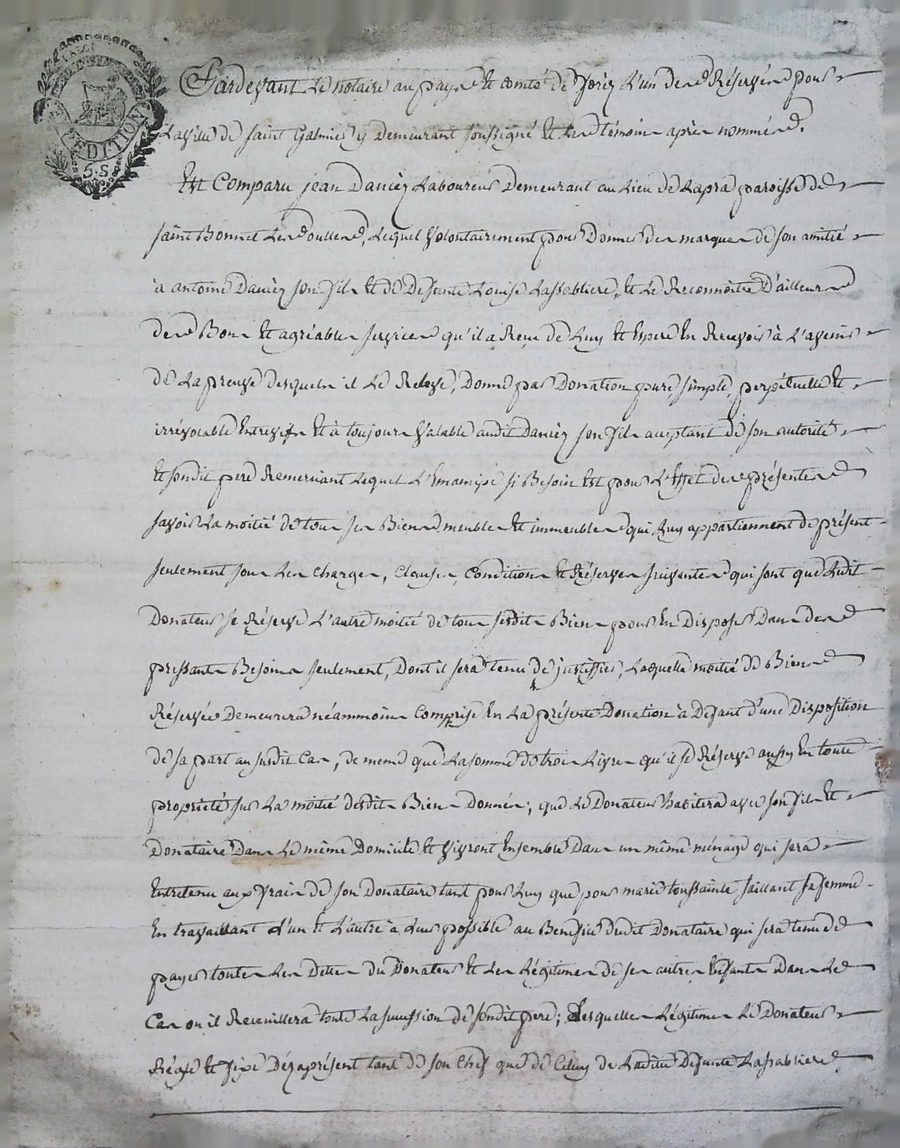 LA LOI
EDITION
5.S
Pardevant Le notaire au pays Et comté de Forez L'un des Réservés pour
La ville de Saint Galmier y Demeurant soussigné Et Les témoins après nommés.
Est Comparu jean Dancer Laboureur Demeurant au Lieu de Lapra paroisse de
saint Bonnet Les oulles, Lequel volontairement pour Donner des marques de son amitié
à antoine Dancer son fils Et de Defunte Louise Lassabliere, Et Le Reconnoitre D'ailleurs
des Bons Et agréables services qu'il a Reçu de Luy Et Espere En Recevoir à L'avenir
de La preuve desquels il Le Releve, Donne par Donation pure, simple, perpétuelle Et
irrévocable Entrevifs Et à toujours valable audit Dancer son fils acceptant de son autorité
Et sondit pere Remerciant Lequel L'Emancipe si Besoin Est pour L'Effet des présentes
savoir La moitié de tous ses Biens meubles Et immeubles qui Luy appartiennent de présent
seulement sous Les charges, Clauses, Conditions Et Réserves suivantes qui sont que Ledit
Donateur se Réserve L'autre moitié de tous sesdits Biens pour En Disposer Dans des
pressants Besoins seulement, Dont il sera tenu de justiffier, Laquelle moitié de Biens
Réservée Demeurera néammoins Comprise En La présente Donation à Defaut d'une Disposition
de sa part au susdit Cas, de meme que La somme de trois Livres qu'il se Réserve aussy En toute
propriété sur La moitié desdits Biens Donnés; que Le Donateur habitera avec son fils Et
Donataire Dans Le même Domicile Et vivront Ensemble Dans un même ménage qui sera
Entretenu aux frais de son Donataire tant pour Luy que pour marie toussainte Jaillant sa femme
En travaillant L'un Et L'autre à Leur possible au Benefice dudit Donataire qui sera tenu de
payer toutes Les Dettes du Donateur Et Les Légitimes de ses autres Enfants Dans Le
Cas ou il Recueillera toute La succession de sondit pere; Lesquelles Légitimes Le Donateur
Régle Et fixe Dèzaprésent tant de son Chef que de Celuy de Ladite Defunte Lassabliere